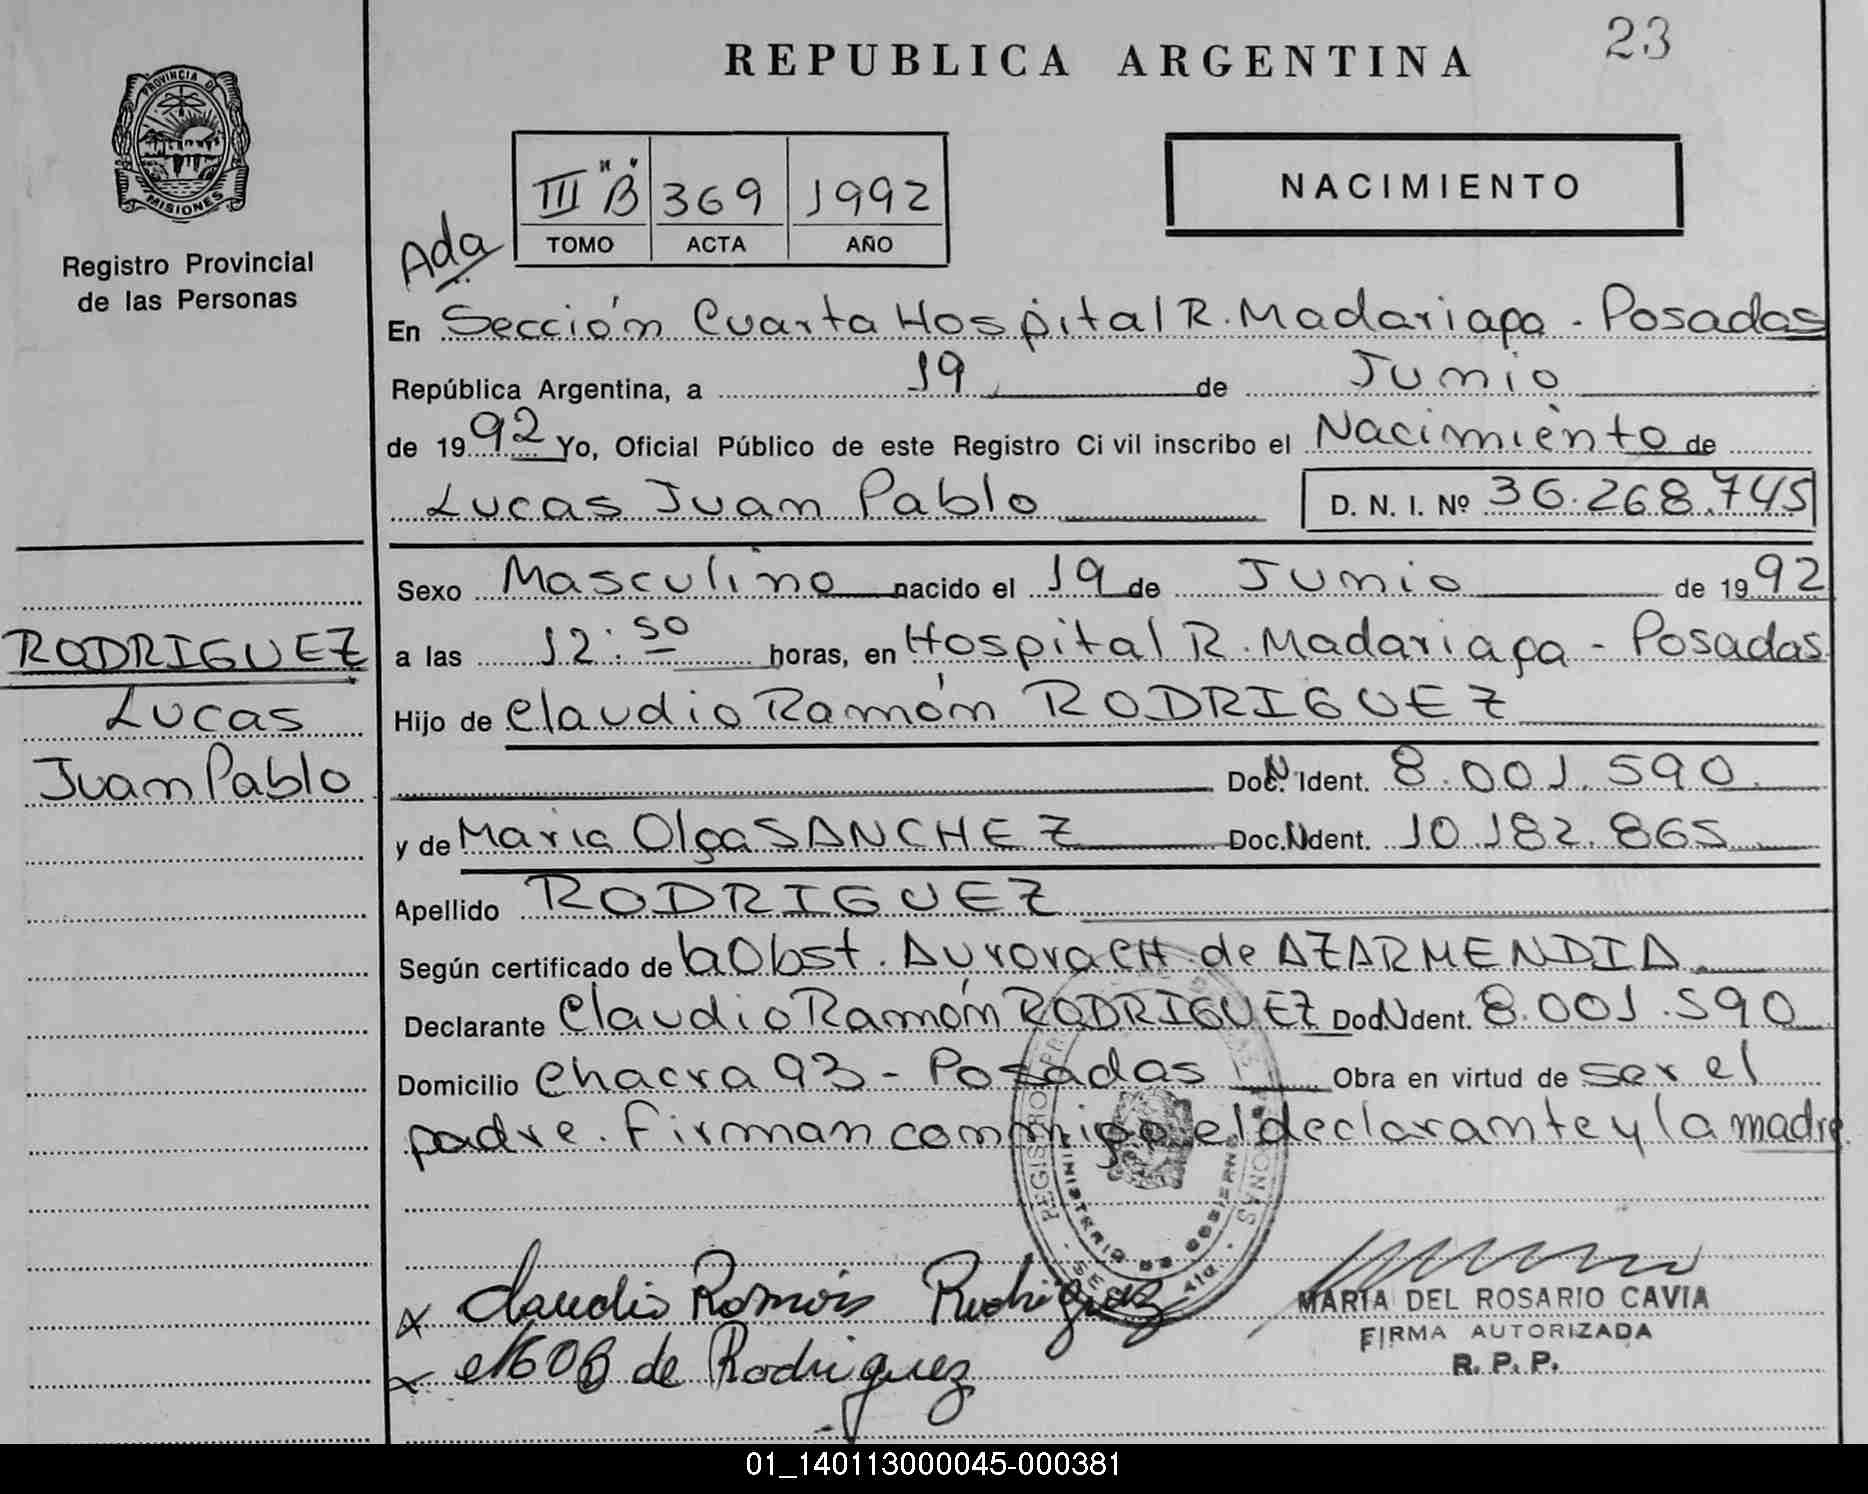 23
REPUBLICA ARGENTINA
PROVINCIA DE
MISIONES
Registro Provincial
de las Personas
III "B" 369 1992
TOMO ACTA AÑO
NACIMIENTO
Ada
En Sección Cuarta Hospital R. Madariaga - Posadas
República Argentina, a 19 de Junio
de 1992 Yo, Oficial Público de este Registro Civil inscribo el Nacimiento de
Lucas Juan Pablo D. N. I. Nº 36.268.745
Sexo Masculino nacido el 19 de Junio de 1992
a las 12:50 horas, en Hospital R. Madariaga - Posadas
Hijo de Claudio Ramón RODRIGUEZ
Doc. N Ident. 8.001.590
y de Maria Olga SANCHEZ Doc. N Ident. 10.182.865
Apellido RODRIGUEZ
Según certificado de la Obst. Aurora CH de AZARMENDIA
Declarante Claudio Ramón RODRIGUEZ Doc. N Ident. 8.001.590
Domicilio Chacra 93 - Posadas Obra en virtud de ser el
padre. Firman conmigo el declarante y la madre
RODRIGUEZ
Lucas
Juan Pablo
MINISTERIO DE GOBIERNO
Claudio Ramón Rodriguez
de Rodriguez
MARIA DEL ROSARIO CAVIA
FIRMA AUTORIZADA
R. P. P.
01_140113000045-000381